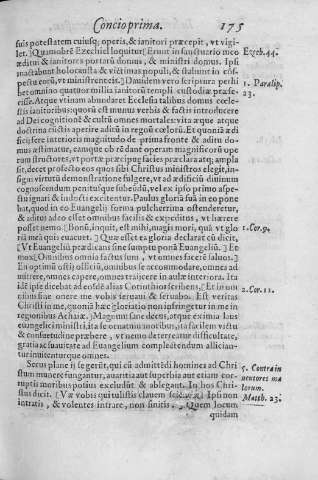 Concio prima. 175
suis potestatem cuiusq; operis, & ianitori præcepit, vt vigi-
let. [Quamobrē Ezechiel loquitur] Erunt in sanctuario meo
æditui & ianitores portarū domus, & ministri domus. Ipsi
mactabunt holocausta & victimas populi, & stabunt in cōs-
pectu eorū, vt ministrent eis. [Dauidem vero scriptura perhi
bet omnino quatuor millia ianitorū templi custodiæ præfe-
cisse. Atque vtinam abundaret Ecclesia talibus domus cæle-
stis ianitoribus: quorū est munus verbis & factis introducere
ad Dei cognitionē & cultū omnes mortales: vitæ atque
doctrina cūctis aperire aditū in regnū cœlorū. Et quoniā ædi
ficij sere interioris magnitudo de prima fronte & aditu do-
mus æstimatur, eamque ob rē dant operam magnificorū ope
rum structores, vt portæ præcipuę facies præclara atq; ampla
sit, decet profecto eos quos sibi Christus ministros elegit, in-
signi virtutū demonstratione fulgere, vt ad ædificiū diuinum
cognoscendum penitusque subeūdū, vel ex ipso primo aspe-
ctu ignari & indocti excitentur. Paulus gloriā suā in eo pone
bat, quod in eo Euangelij forma pulcherrima ostenderetur,
& aditus adeo esset omnibus facilis & expeditus, vt hærere
posset nemo. [Bonū, inquit, est mihi, magis mori, quā vt glo
riā meā quis euacuet. [Quæ esset ea gloria declarat cū dicit,
[Vt Euangeliū prædicans sine sumptu ponā Euangeliū. [Et
mox [Omnibus omnia factus sum, vt omnes facerē saluos.]
En optimū ostij officiū, omnibus se accommodare, omnes ad
mittere, omnes capere, omnes traijcere in aulæ interiora. Ita
idē ipse dicebat ad eosdē alias Corinthios scribens. [Et in om
nibus sine onere me vobis seruaui & seruabo. Est veritas
Christi in me, quoniā hæc gloriatio non infringetur in me in
regionibus Achaiæ. [Magnum sane decus, atque eximia laus
euangelici ministri, ita se ornatum moribus, ita facilem victu
& consuetudine præbere, vt nemo deterreatur difficultate,
gratia ac suauitate ad Euangelium complectendum allician-
tur inuitenturque omnes.
Secus plane ij se gerūt, qui cū admittēdi homines ad Chri
stum munere fungantur, auaritia aut superbia aut etiam cor-
ruptis moribus potius excludūt & ablegant. In hos Chri-
stus dicit. [Væ vobis qui tulistis clauem scientiæ. [Ipsi non
intratis, & volentes intrare, non sinitis. [Quem locum
quidam
Ezech. 44.
1. Paralip.
23.
1. Cor. 9.
2. Cor. 11.
5. Contra in
uentores ma
lorum.
Matth. 23.